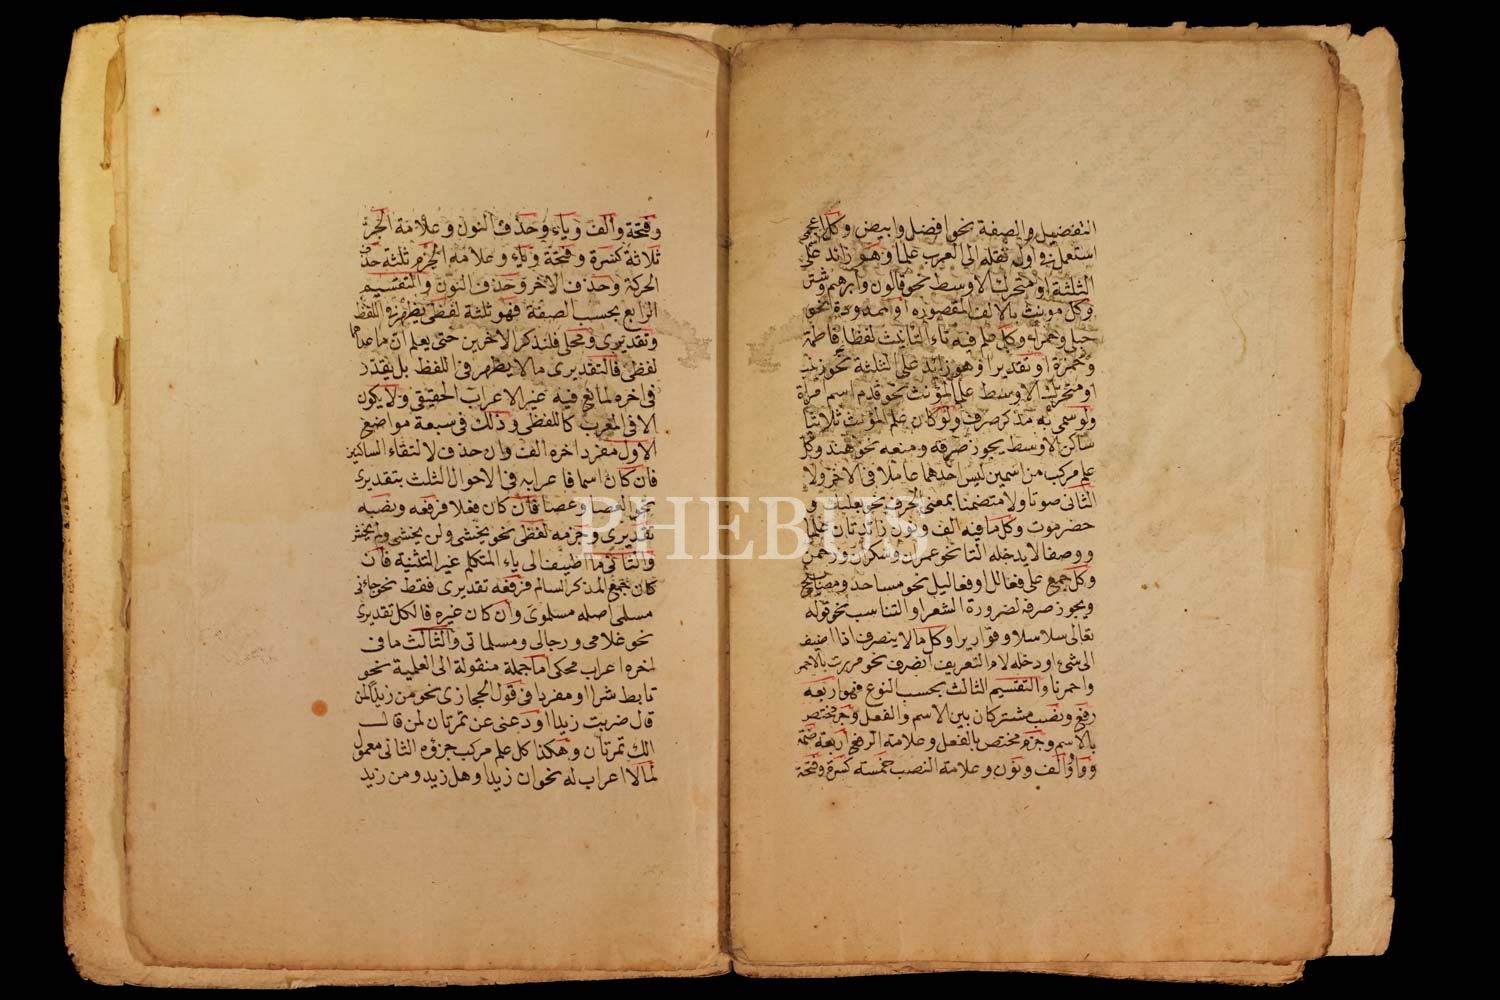 التفضيل والصفة نحو افضل وابيض وكل اعجمى
استعمل فى اول نقله الى العرب علما وهو زائد على
الثلثة او متحرك الاوسط نحو قالون وابرهيم وشتر
وكل مونث بالالف المقصورة او الممدودة نحو
حبلى وحمراء وكل علم فيه تاء التانيث لفظا كفاطمة
وحمزة او تقديرا وهو زائد على الثلثة نحو زينب
او متحرك الاوسط علم المؤنث نحو قدم اسم امراة
ولو سمى به مذكر صرف ولو كان علم المؤنث ثلاثيا
ساكن الاوسط يجوز صرفه ومنعه نحو هند وكل
علم مركب من اسمين ليس احدهما عاملا فى الاخر ولا
الثانى صوتا ولا متضمنا بمعنى الحرف نحو بعلبك و
حضرموت وكل ما فيه الف ونون زائدتان علما
ووصفا لا يدخله التا نحو عمران وسكران ورحمن
وكل جمع على فعالل او فعاليل نحو مساجد ومصابيح
ويجوز صرفه لضرورة الشعر او التناسب نحو قوله
تعالى سلاسلا وقواريرا وكل ما لا ينصرف اذا اضيف
الى شئ او دخله لام التعريف انصرف نحو مررت بالاحمر
واحمرنا والتقسيم الثالث بحسب النوع فهو اربعة
رفع ونصب مشتركان بين الاسم والفعل وجر مختص
بالاسم وجزم مختص بالفعل وعلامة الرفع اربعة ضمة
وواو والف ونون وعلامة النصب خمسته كسرة وفتحة
وفتحة والف وياء وحذف النون وعلامة الجر
ثلاثة كسرة وفتحة وياء وعلامة الجزم ثلثة حذف
الحركة وحذف الاخر وحذف النون والتقسيم
الرابع بحسب الصفة فهو ثلثة لفظى يظهر فى اللفظ
وتقديرى ومحلى فلنذكر الاخرين حتى يعلم ان ما عداهما
لفظى فالتقديرى ما لا يظهر فى اللفظ بل يقدر
فى اخره لمانع فيه غير الاعراب الحقيقى ولا يكون
الا فى المعرب كاللفظى وذلك فى سبعة مواضع
الاول مفرد اخره الف وان حذف لالتقاء الساكنين
فان كان اسما فاعرابه فى الاحوال الثلث بتقديرى
نحو العصا وعصا فان كان فعلا فرفعه ونصبه
تقديرى وجزمه لفظى نحو يخشى ولن يخشى ولم يخش
والثانى ما اضيف الى ياء المتكلم غير التثنية فان
كان جمع المذكر السالم فرفعه تقديرى فقط نحو جاءنى
مسلمى اصله مسلموى وان كان غيره فالكل تقديرى
نحو غلامى ورجالى ومسلماتى والثالث ما فى
اخره اعراب محكى اما جملة منقولة الى العلمية نحو
تابط شرا او مفردا فى قول الحجازى نحو من زيدا لمن
قال ضربت زيدا او دعنى عن تمرتان لمن قال
الك تمرتان وهكذا كل علم مركب جزؤه الثانى معمول
لما لا اعراب له نحو ان زيدا وهل زيد ومن زيد
PHEBUS